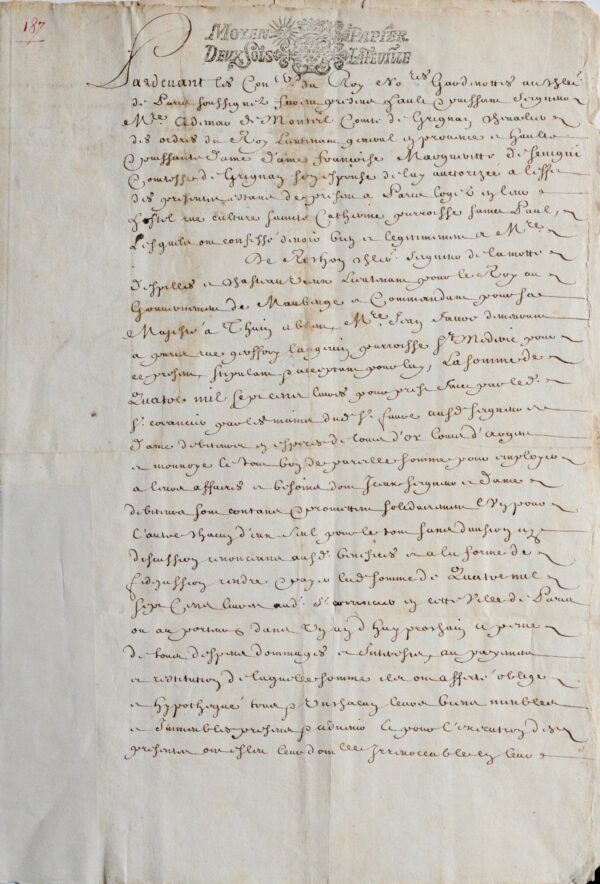 187
MOYEN PAPIER
DEUX SOLS LA FEUILLE
Pardevant les Con.ers du Roy No.res Gardenottes au
de Paris soussignez furent presens hault Puissant Seigneur
M.re Ademar de Monteil Comte de Grignan Chevalier
des ordres du Roy Lieutenant general en provence et haulte
Puissante Dame Dame Francoise Margueritte de Sevigni
Comtesse de Grignan son espouse de luy auctorizée a l'effet
des presentes estans de present a Paris logez en leur
hostel rue culture saincte Catherine parroisse sainct Paul,
Lesquels ont confessé devoir bien et legitimement a M.re
De Seigneur de la motte
Lieutenant pour le Roy au
Gouvernement de Maubeuge et Commandant pour sa
Majesté a Thuin M.re Jean Favre demeurant
a paris rue geoffroy langevin parroisse S.t Mederic pour
ce present, stipulant et acceptant pour luy, La somme de
Quatre mil sept cens livres pour prest faict par led.
S.r par les mains dud. S.r Favre ausd. seigneur et
Dame debiteurs en especes de Louis d'or Louis d'argent
et monnoye le tout bon de pareille somme pour employer
a leurs affaires et besoins dont Iceux Seigneur et Dame
debiteurs sont contans et promettent solidairement l'un pour
l'autre chacun d'eux seul pour le tout sans division et
discussion renonceans ausd. benefices et a la forme de
fidejussion rendre et payer lad. somme de Quatre mil
sept Cens livres aud. S.r en cette Ville de Paris
ou au porteur dans Un an d'huy prochain a peine
de tous despens dommages et Interests, au payement
et restitution de laquelle somme ils ont affecté obligé
et hypothequé tous et Uns chacuns leurs biens meubles
et Immeubles presens et advenir et pour l'execution des
presentes ont esleu leur dom.lle Irrevocable en leur